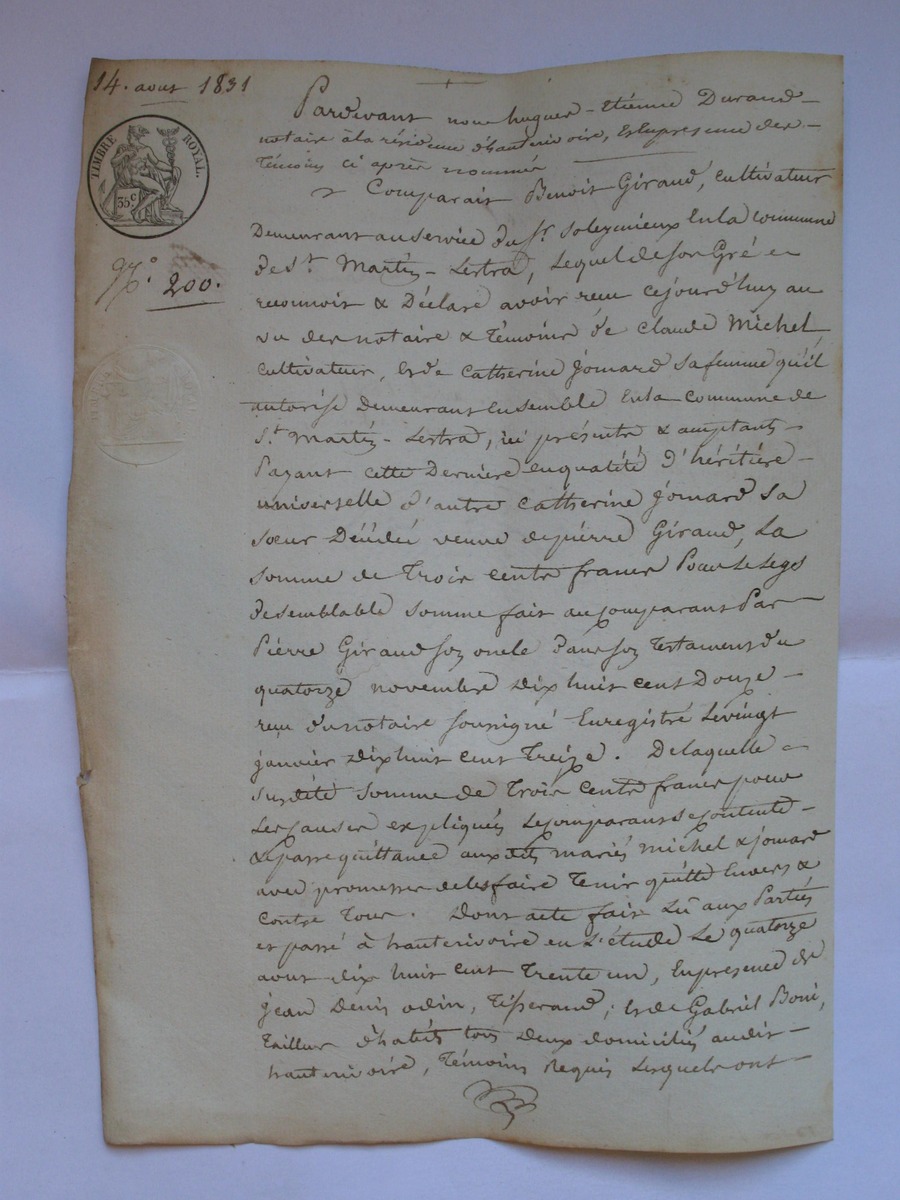 14. aout 1831
TIMBRE ROYAL.
35 c
No. 200.
Pardevant nous hugues-Etienne Durand
notaire à la résidence d'hauterivoire, Et En présence des
Témoins ci après nommés
Comparait Benoit Giraud, cultivateur
Demeurant au service du Sr. Soleymieux En la commune
de St. Martin-Lestra, Lequel de son Gré a
reconnoit & Déclaré avoir reçu cejourd'huy au
vu des notaire & Témoins de Claude Michel
cultivateur, Et de Catherine jomard sa femme qu'il
autorise Demeurant Ensemble En la commune de
St. Martin-Lestra, ici présents & acceptants
Payant cette Dernière en qualité d'héritière
universelle d'autre Catherine jomard sa
sœur Décédée veuve de pierre Giraud, La
somme de Trois cents francs Pour Le Legs
de semblable somme fait au comparant Par
Pierre Giraud son oncle dans son Testament du
quatorze novembre Dix huit cent Douze
reçu du notaire soussigné Enregistré Le vingt
janvier Dix huit cent Treize. De laquelle
susdite somme de Trois cents francs pour
Les causes expliquées Le comparant se contente
& Passe quittance aux dits mariés Michel & jomard
avec promesse de les faire Tenir quitte Envers &
contre Tous. Dont acte fait Lû aux Parties
et passé à hauterivoire en L'étude Le quatorze
aout dix huit cent Trente un, En présence de
jean Denis odin, Tisserand; Et de Gabriel Boni,
Tailleur d'habits tous Deux domiciliés audit
hauterivoire, Témoins Requis Lesquels ont